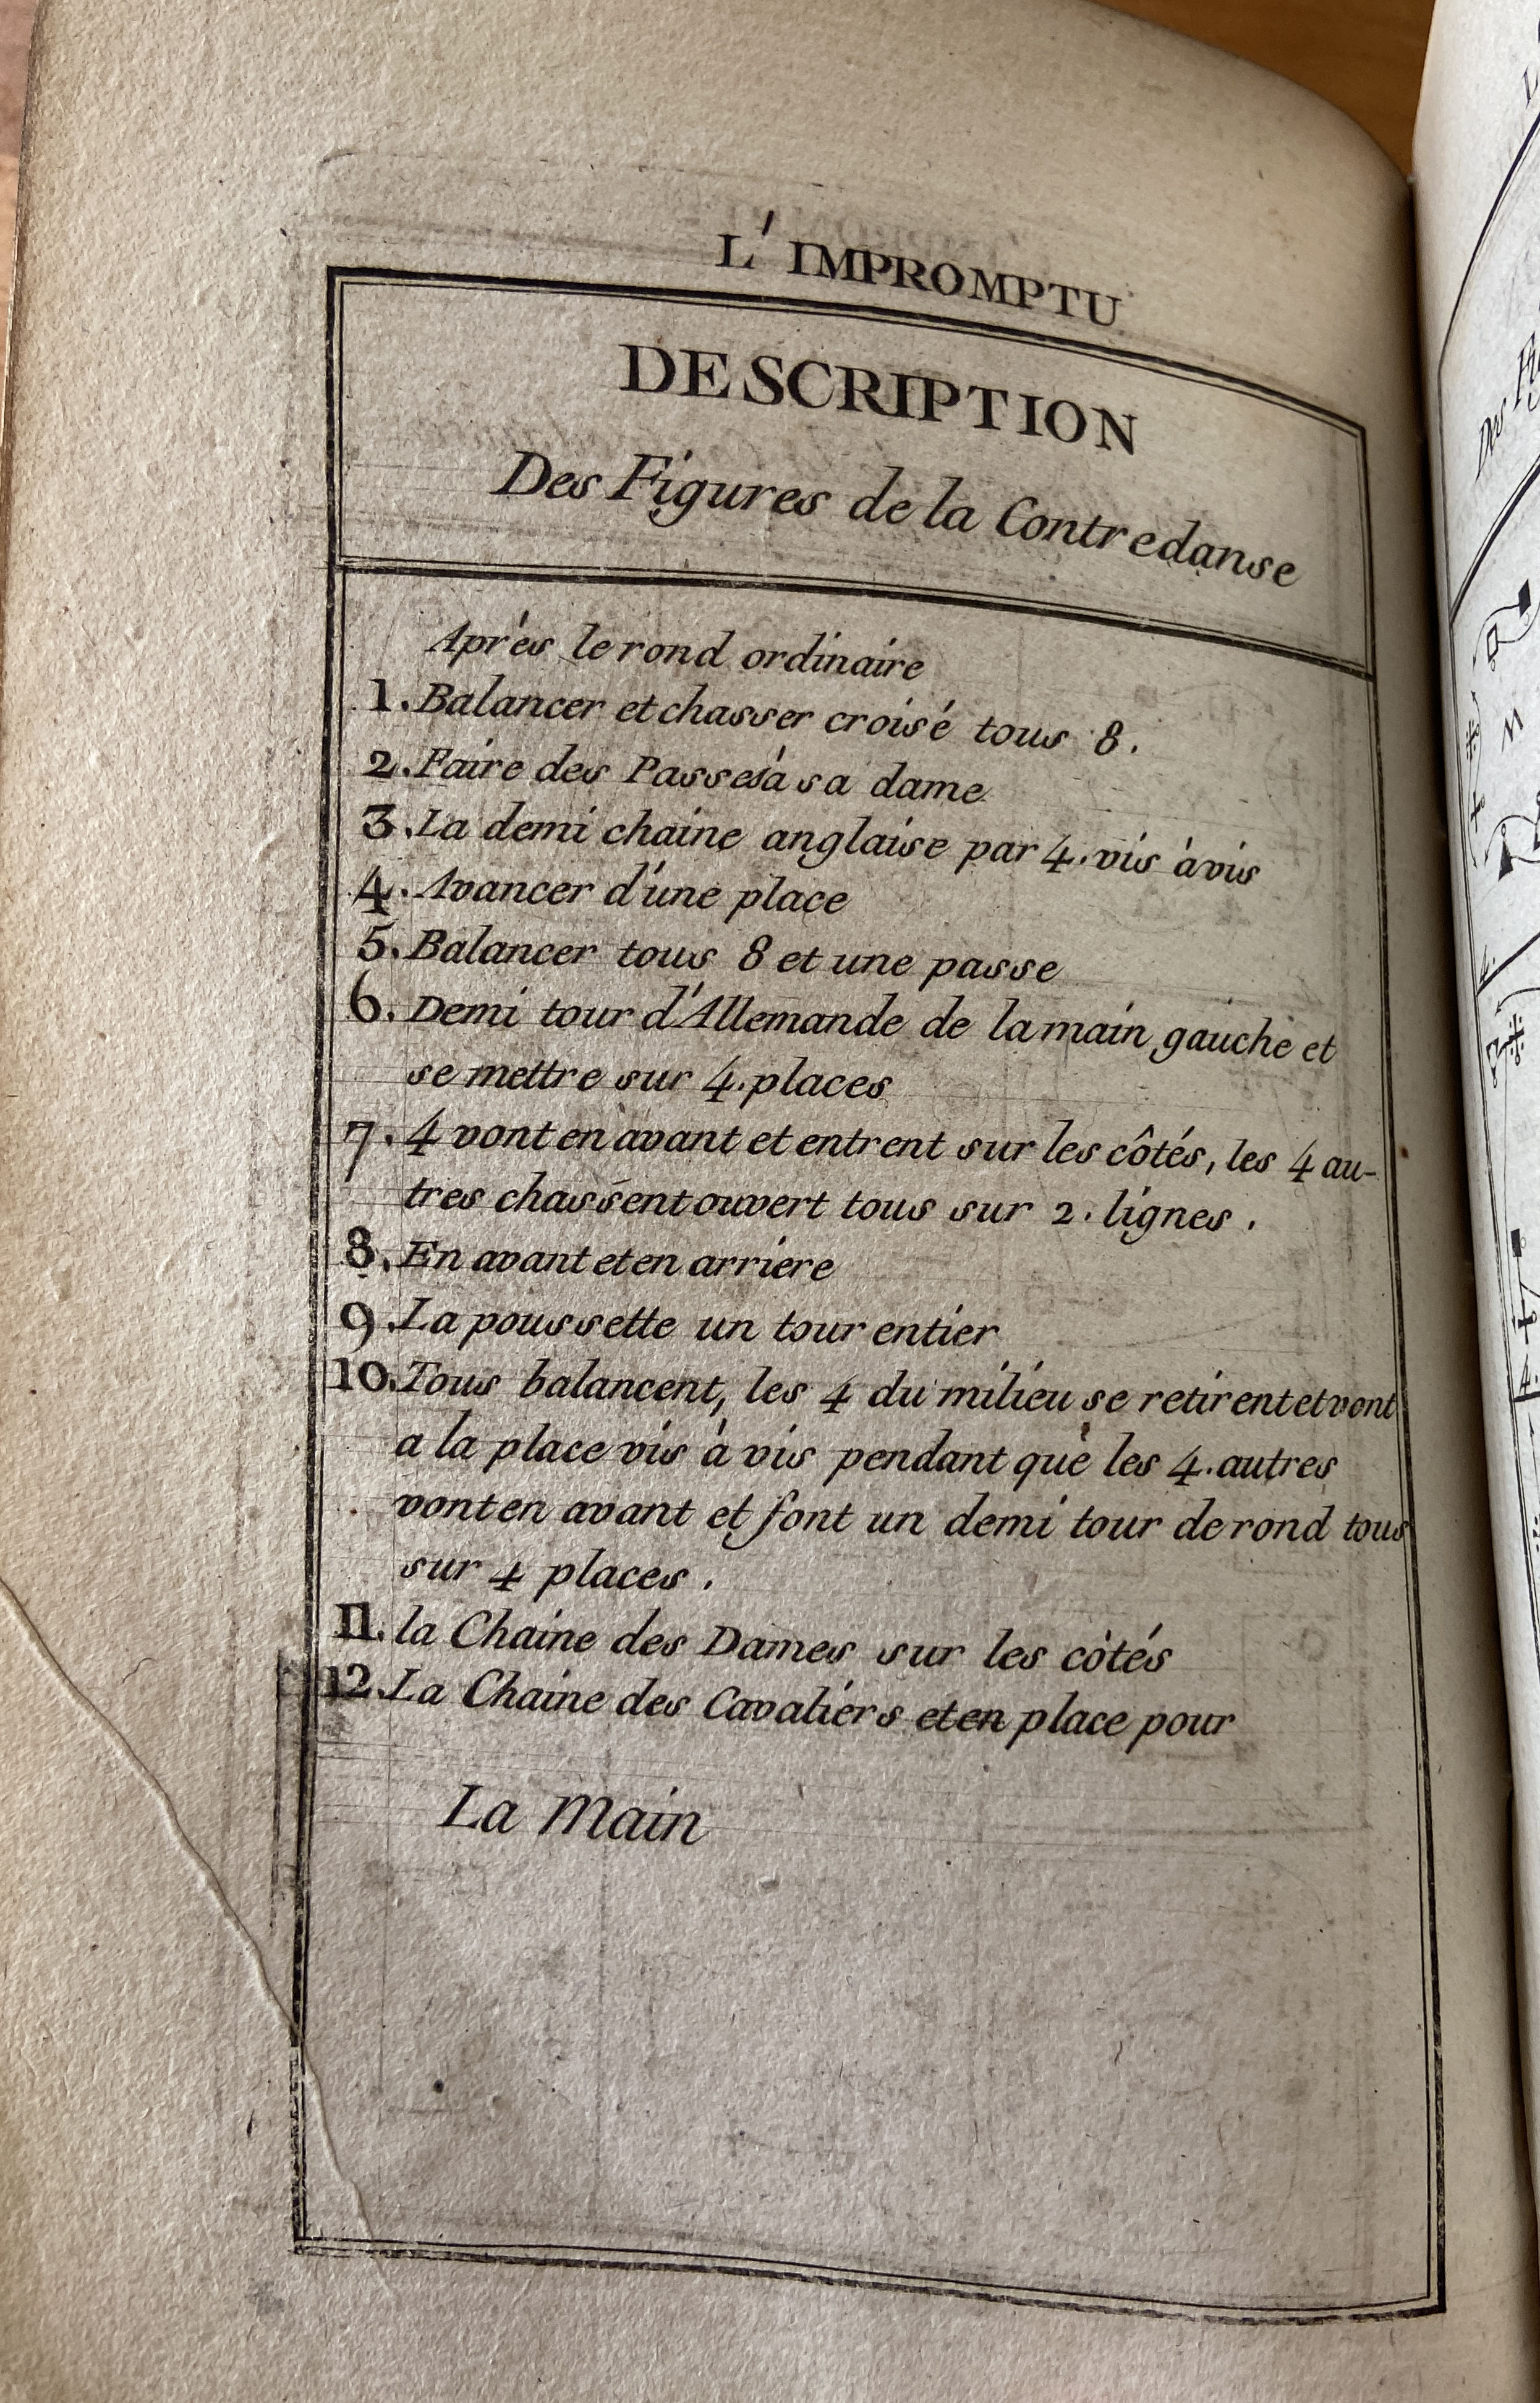 L'IMPROMPTU
DESCRIPTION
Des Figures de la Contredanse
Après le rond ordinaire
1. Balancer et chasser croisé tous 8.
2. Faire des Passes à sa dame
3. La demi chaine anglaise par 4. vis à vis
4. Avancer d'une place
5. Balancer tous 8 et une passe
6. Demi tour d'Allemande de la main gauche et
se mettre sur 4. places
7. 4 vont en avant et entrent sur les côtés, les 4 au-
tres chassent ouvert tous sur 2. lignes.
8. En avant et en arriere
9. La poussette un tour entier
10. Tous balancent, les 4 du milieu se retirent et vont
a la place vis à vis pendant que les 4. autres
vont en avant et font un demi tour de rond tous
sur 4 places.
11. la Chaine des Dames sur les côtés
12. La Chaine des Cavaliers et en place pour
La Main